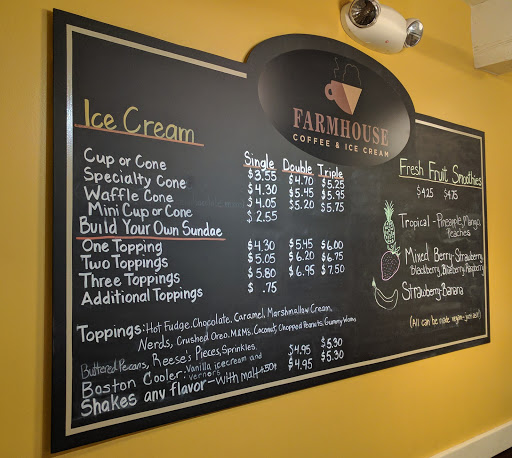 FARMHOUSE
COFFEE & ICE CREAM
Ice Cream
Single Double Triple
Cup or Cone $3.55 $4.70 $5.25
Specialty Cone $4.30 $5.45 $5.95
Waffle Cone $4.05 $5.20 $5.75
Mini Cup or Cone $2.55
Build Your Own Sundae
One Topping $4.30 $5.45 $6.00
Two Toppings $5.05 $6.20 $6.75
Three Toppings $5.80 $6.95 $7.50
Additional Toppings $.75
Toppings: Hot Fudge, Chocolate, Caramel, Marshmallow Cream,
Nerds, Crushed Oreo, M&Ms, Coconut, Chopped Peanuts, Gummy Worms
Buttered Pecans, Reese's Pieces, Sprinkles.
Boston Cooler: Vanilla icecream and vernors $4.95 $5.30
Shakes any flavor - with malt +50¢ $4.95 $5.30
Fresh Fruit Smoothies
$4.25 $4.75
Tropical - Pineapple, Mango,
Peaches
Mixed Berry - Strawberry,
blackberry, Blueberry, Raspberry
Strawberry-Banana
(All can be made vegan - just ask!)